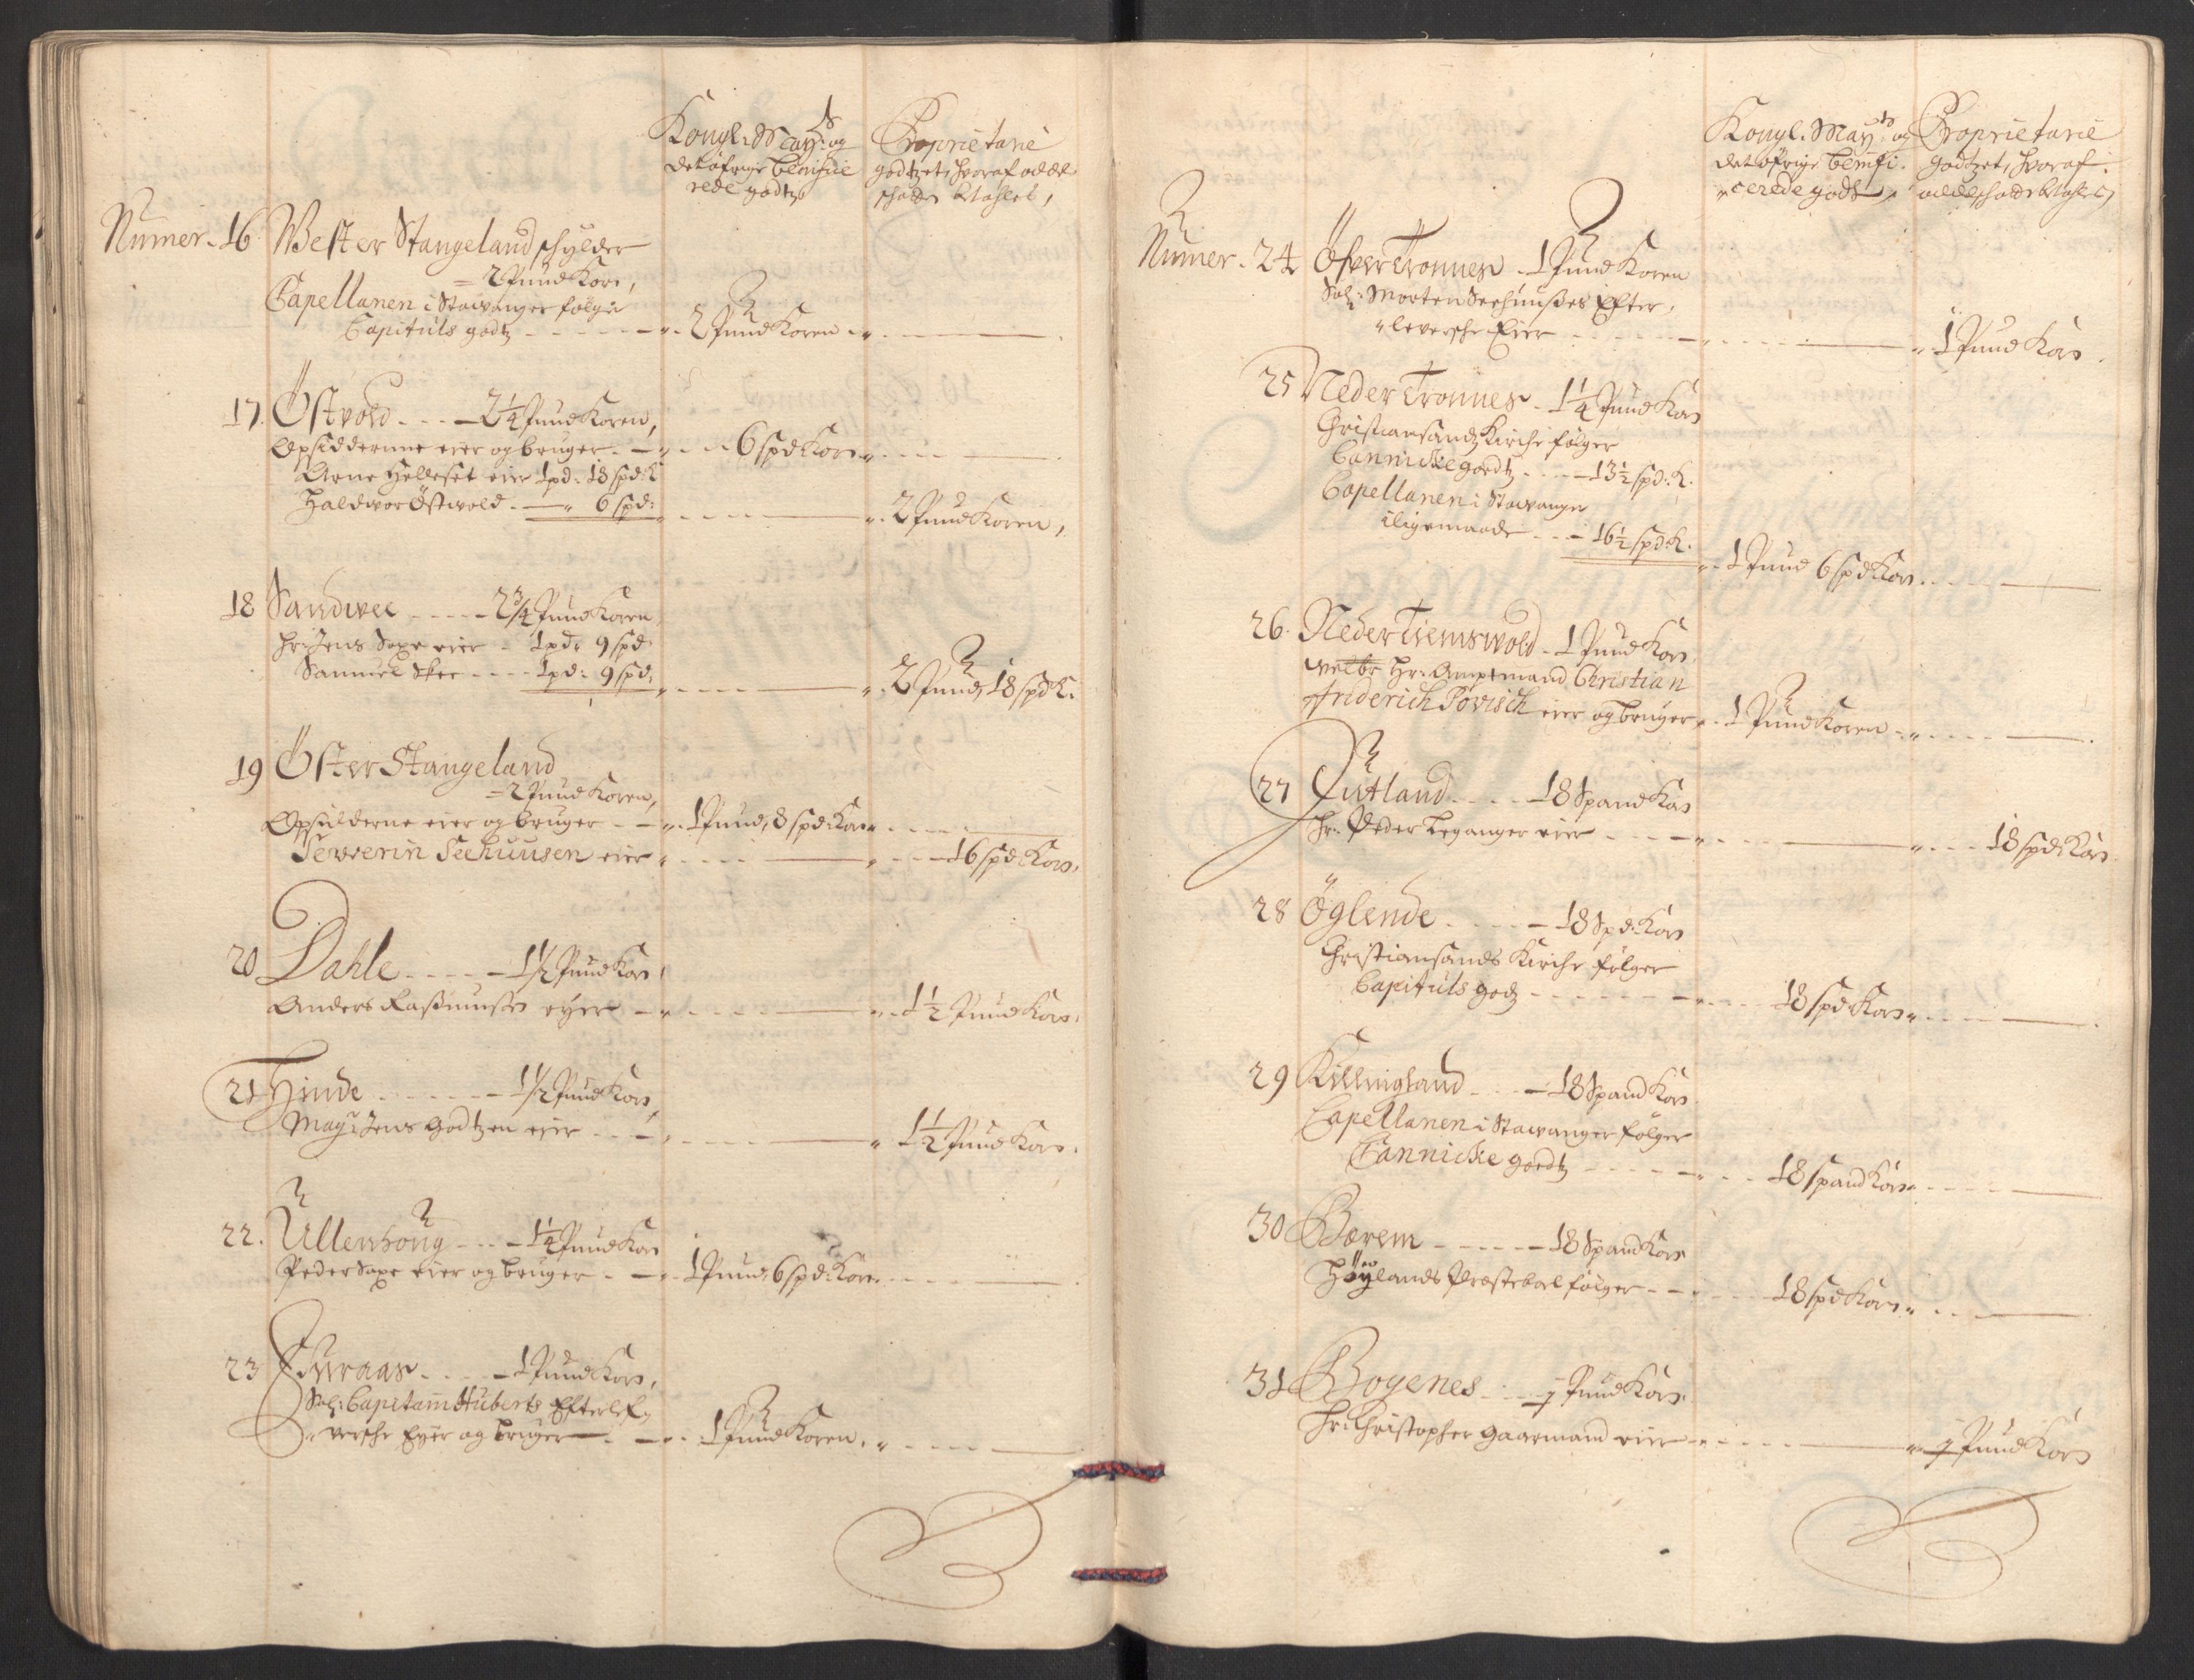 Kongl. Mayts: og
det øfrige benifice
rede godtz
Proprietarie
godtzet, hvoraf odels
schatt betahles,
Numer. 16 Wester Stangeland schylder
= 2 Pund Korn,
Capellanen i Stawanger følger
Capituls godtz - - - 2 Pund Koren
17. Østvold - - - 2 1/4 Pund Koren,
Opsidderne eier og bruger - - 6 spd Korn
Arne Helleset eier 1 pd: 18 spd: K
Haldvor Østwold - 6 spd: - - 2 Pund Koren,
18 Sandwee - - - 2 3/4 Pund Koren
Hr: Jens Saxe eier - 1 pd: 9 spd
Samuel Skee - - - 1 pd: 9 spd: - - 2 Pund, 18 spd K.
19 Øster Stangeland
= 2 Pund Koren,
Opsidderne eier og bruger - - 1 Pund, 8 spd: Korn
Severin Seehuusen eier - - - 16 spd: Korn.
20 Dahle - - - 1 1/2 Pund Korn,
Anders Rasmusen eyer - - - 1 1/2 Pund Korn.
21 Hinde - - - 1 1/2 Pund Korn,
Mag: Jens Godtzen eier - - - 1 1/2 Pund Korn.
22. Ullenhoug - - - 1 1/4 Pund Korn
Peder Saxe eier og bruger - - 1 Pund, 6 spd: Korn
23 - - - 1 Pund Korn,
Sal: Capitain Huberts Efterlef,,
,,versche Eyer og bruger - - 1 Pund Koren.
Kongl. Mayts og
det øfrige benifi,,
,,cerede gods
Proprietarie
godtzet, hvoraf
odelschatt betahles,
Numer. 24 Øfver Tronnes - 1 Pund Koren
Sal: Morten Seehuuses Efter,,
,,leversche Eier - - - 1 Pund Korn.
25 Neder Tronnes - 1 1/4 Pund Korn
Christiansandtz Kirche følger
Cannicke goedtz - - - 13 1/2 spd: K.
Capellanen i Stawanger
iligemaade - - - 16 1/2 spd: K. - 1 Pund 6 spd Korn
26. Neder Tiemswold - 1 Pund Korn.
welbr Hr: Amptmand Christian
Friderich Powisch eier og bruger - 1 Pund Koren
27 Rutland - - - 18 Spand Korn
Hr: Peder Leganger eier - - - 18 spd: Korn
28 Øglende - - - 18 Spd: Korn
Christiansands Kirche følger
Capituls godz - - - 18 spd: Korn
29 Killingland - - - 18 Spand Korn
Capellanen i Stawanger følger
Cannicke goedtz - - - 18 spand Korn
30 Bærem - - - 18 Spand Korn
Höylands Præsteboel følger - - 18 spd Korn
31 Bogenes - - - 1 Pund Korn.
Hr: Christopher Gaarmand eier - - - 1 Pund Korn